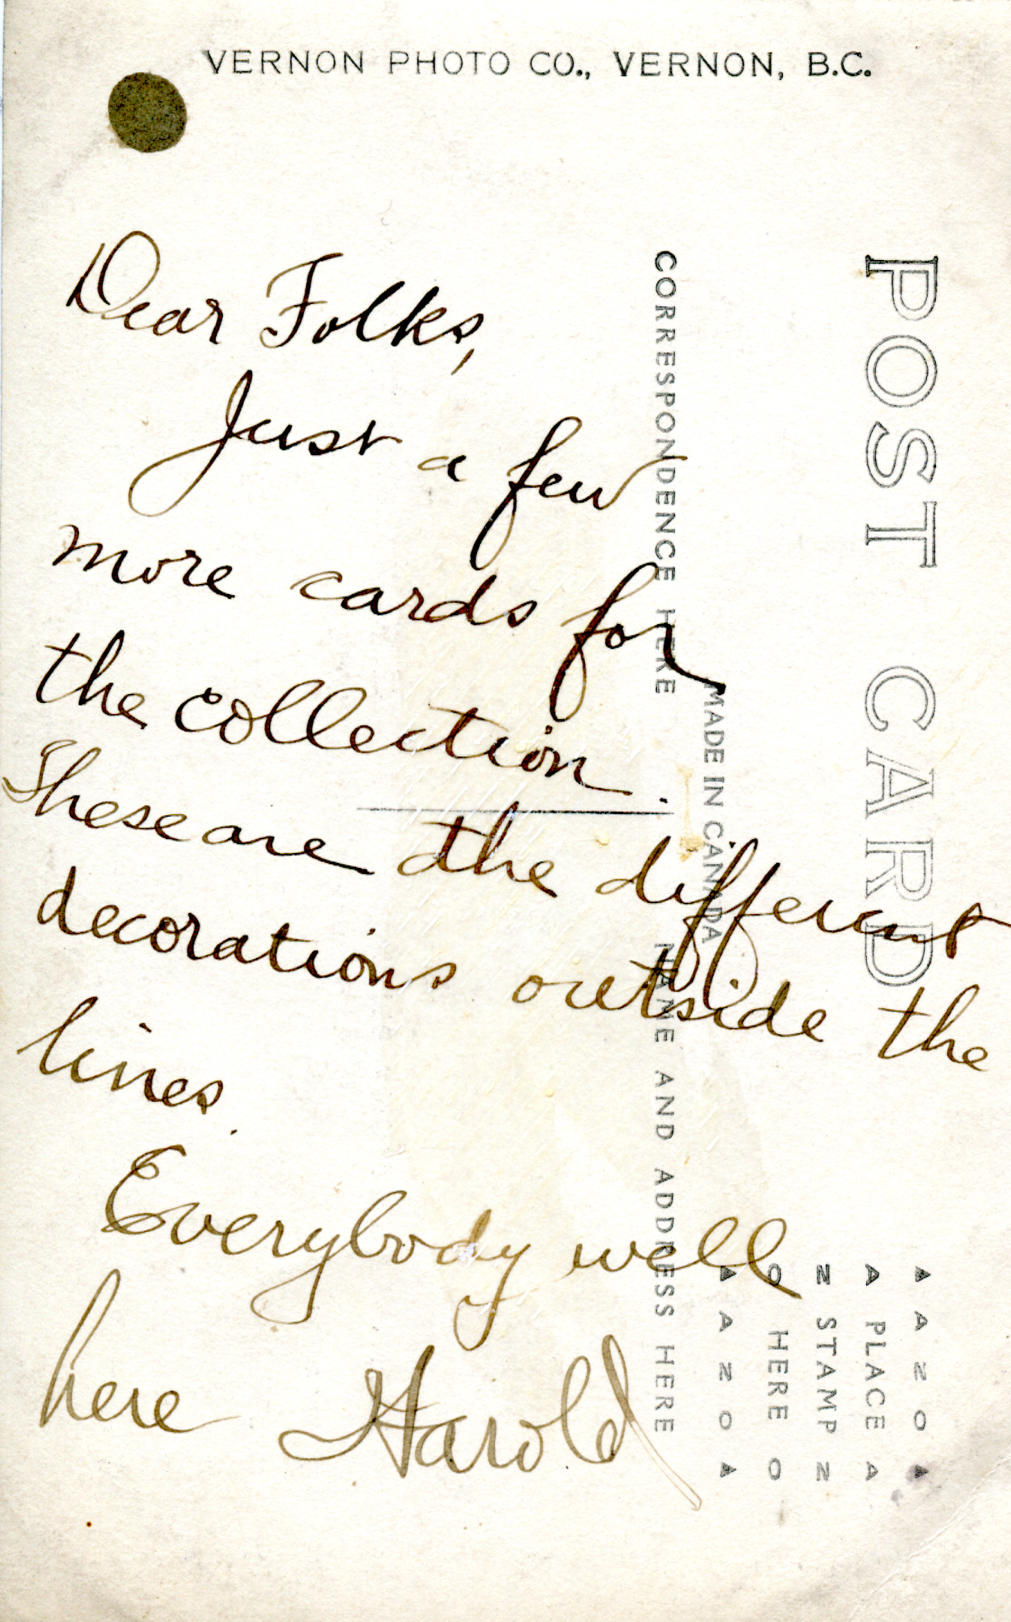 VERNON PHOTO CO., VERNON, B.C.
Dear Folks,
Just a few
more cards for
the collection.
These are the different
decorations outside the
lines.
Everybody well
here Harold
POST CARD
MADE IN CANADA
CORRESPONDENCE HERE
NAME AND ADDRESS HERE
▲ A Z O ▲
A PLACE A
Z STAMP Z
O HERE O
▲ A Z O ▲